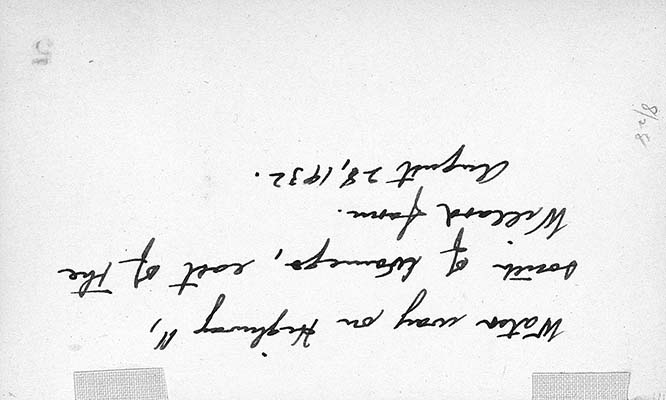 Water way on Highway 11,
south of Wamego, east of the
Willard farm.
August 28, 1932.